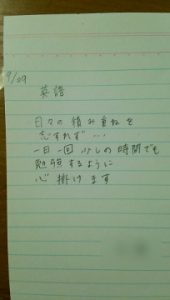 9/29
英語
日々の積み重ねを
忘すれず…
一日一回少しの時間でも
勉強するように
心掛けます